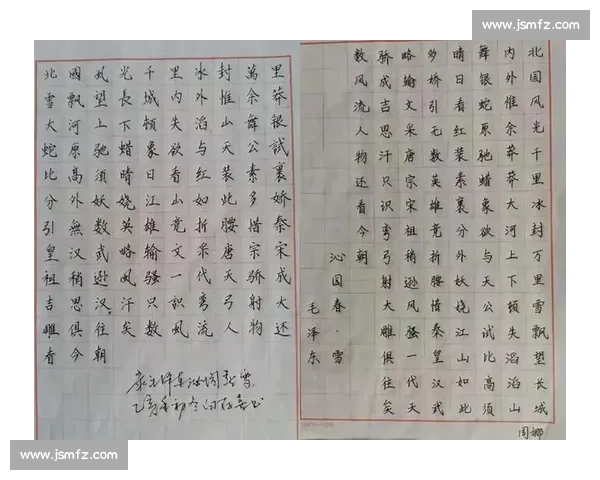 www.jsmfz.com
北國風光千里冰封萬里
雪飘望長城内外惟余莽
大河上下頓失滔山舞銀
蛇原驰蜡象欲与天公試
比高須晴日看红装素裹
分外妖娆江山如此多娇
引無数英雄竞折腰惜秦
皇汉武略输文采唐宗宋
祖稍逊風骚一代天骄成
吉思汉汗只識弯弓射大
雕俱往矣数風流人物还
看今朝
北国风光千里冰封万里雪飘望长城
内外惟余莽莽大河上下顿失滔滔山
舞银蛇原驰蜡象欲与天公试比高须
晴日看红装素裹分外妖娆江山如此
多娇引无数英雄竞折腰惜秦皇汉武
略输文采唐宗宋祖稍逊风骚一代天
骄成吉思汗只识弯弓射大雕俱往矣
数风流人物还看今朝
沁园春·雪
毛泽东
周娜
www.jsmfz.com